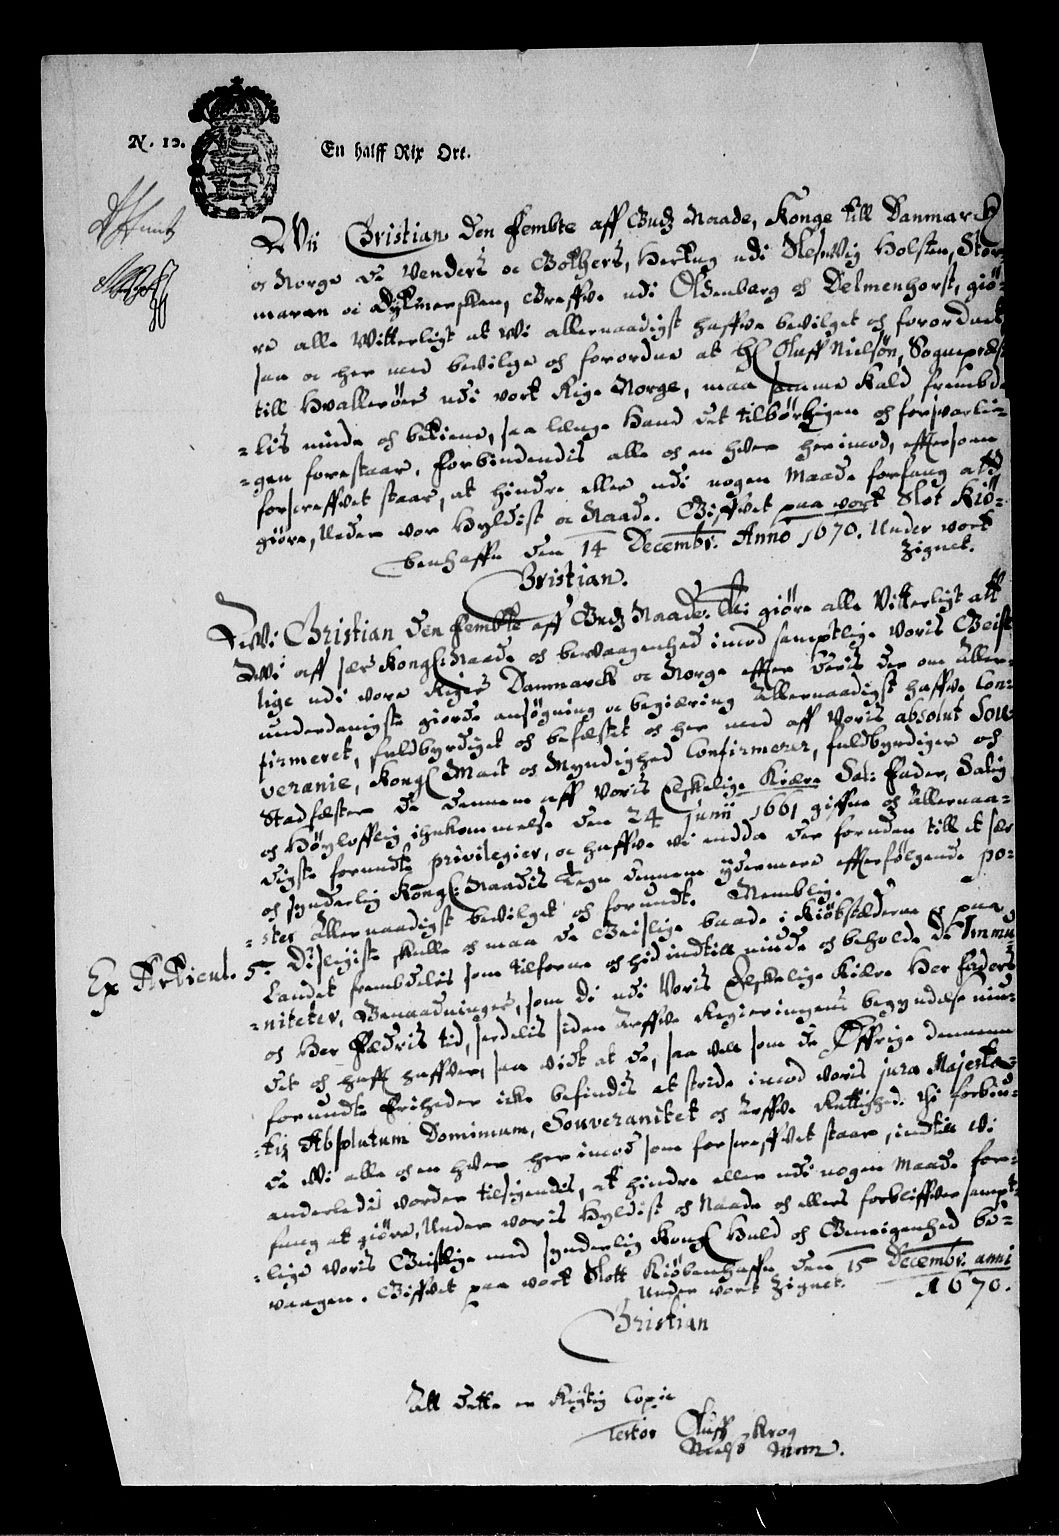 N. 12.
En halff Rix Ort.
Wii Christian den fembte aff Gudz Naade, Konge till Danmarck
oc Norge de Venders oc Gothers, Hertug udi Slesvig Holsten, Stor-
maren oc Dytmersken, Greffve udi Oldenborg och Delmenhorst, giø-
re alle Witterligt at Wi allernaadigst haffve bevilget och forordnet
saa oc her med bevilge och forordne at Hr Oluff Nielsøn, Sogneprest
till Hvalløer udi vort Rige Norge, maa samme Kald frembde-
-lis niude och betiene, saa lenge Hand det tilbørligen och forsvarli-
-gen forestaar, forbindendis alle och en hver herimod, effter som
forscreffvet staar, at hindre eller udi nogen Maade forfang att
giøre, Under vor Hyldist oc Naade. Giffvet paa vort Slot Kiø-
benhaffn den 14 Decembr. Anno 1670. Under vort
Zignet.
Christian.
Wi Christian den fembte aff Gudz Naade. Etc: giøre alle Vitterligt att
Wi aff sær Kongl: Naade och bevaagenhed imod samptlige Voris Geist-
lige udi vore Riger Danmarck oc Norge effter deris der om Aller-
underdanigste giorde ansøgning oc begiæring Allernaadigst haffve Con-
firmeret, fuldbyrdiget och befæstet och her med aff Voris absolut Sou-
veranie, Kongl Mact och Myndighed Confirmerer, fuldbyrdiger och
Stadfæster de dennem aff Voris Elskelige Kiære Sal: Fader, Salig
och Høylofflig ihukommelse den 24 Junii 1661 giffne och Allernaa-
digste forundte privilegier, oc haffve vi endda der foruden till et sær
och synderlig Kongl: Naadis Tegn dennem ydermere effterfølgende po-
-ster Allernaadigst bevilget och forundt. Nemblig.
Ex Articul. 5. Disligiste skulle och maa de Geislige baade i Kiøbstæderne oc paa
Landet frembdelis som tilforne och hid indtill niude och beholde de Immu-
-niteter, Benaadninger, som di udi Voris Elskelige Kiære Her Faders
och Her Fædris tid, serdelis siden Arffve Regieringens begyndelse niu-
det och hafft haffver, saa vidt at de, saa vell som de Øffrige dennem
forundte Friheder icke befindis at stride imod voris jura Majesta-
-tis Absolutum Dominium, Souveranitet och Arffve Rettighed. Thi forbiu-
de Wi alle och en hver herimod som forscreffvet staar, indtill Wi
anderledis vorder tilsigendis, at hindre eller udi nogen Maade for-
fang at giøre, Under voris Hyldist och Naade och ellers forbliffver sampt-
-lige Voris Geistlige med synderlig Kongl Huld och Gunst­igenhed be-
vaagen. Giffvet paa vort Slott Kiøbenhaffn den 15 Decembr. anni
Under vort Zignet. 1670.
Christian
All dette er Rigtig Copie
Testor Oluff Krog
Niels